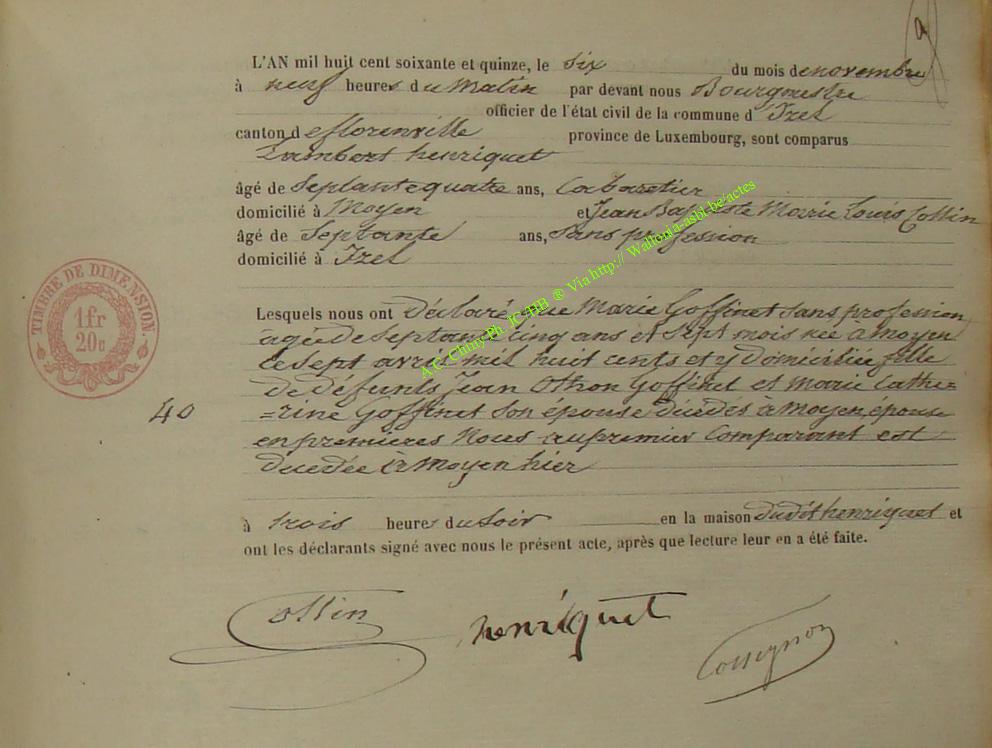 L'AN mil huit cent soixante et quinze, le six du mois de novembre
à neuf heures du Matin par devant nous Bourgmestre
officier de l'état civil de la commune d'Izel
canton de florenville province de Luxembourg, sont comparus
Lambert henriquet
âgé de Septante quatre ans, Cabaretier
domicilié à Moyen et Jean Baptiste Marie Louis Collin
âgé de Septante ans, sans profession
domicilié à Izel
Lesquels nous ont déclaré que Marie Goffinet sans profession
agée de Septante cinq ans et Sept mois née à moyen
le sept avril mil huit cents et y domiciliée fille
de défunts Jean Othon Goffinet et Marie Cathe=
=rine Goffinet son épouse décédés à moyen, épouse
en premières Noces du premier Comparant est
décédée à moyen hier
40
à trois heures du Soir en la maison dudit henriquet et
ont les déclarants signé avec nous le présent acte, après que lecture leur en a été faite.
Collin henriquet
TIMBRE DE DIMENSION.
1fr
20c
A.C. Chiny Ph. JC/HB ® Via http:// Wallonia-asbl-be/actes